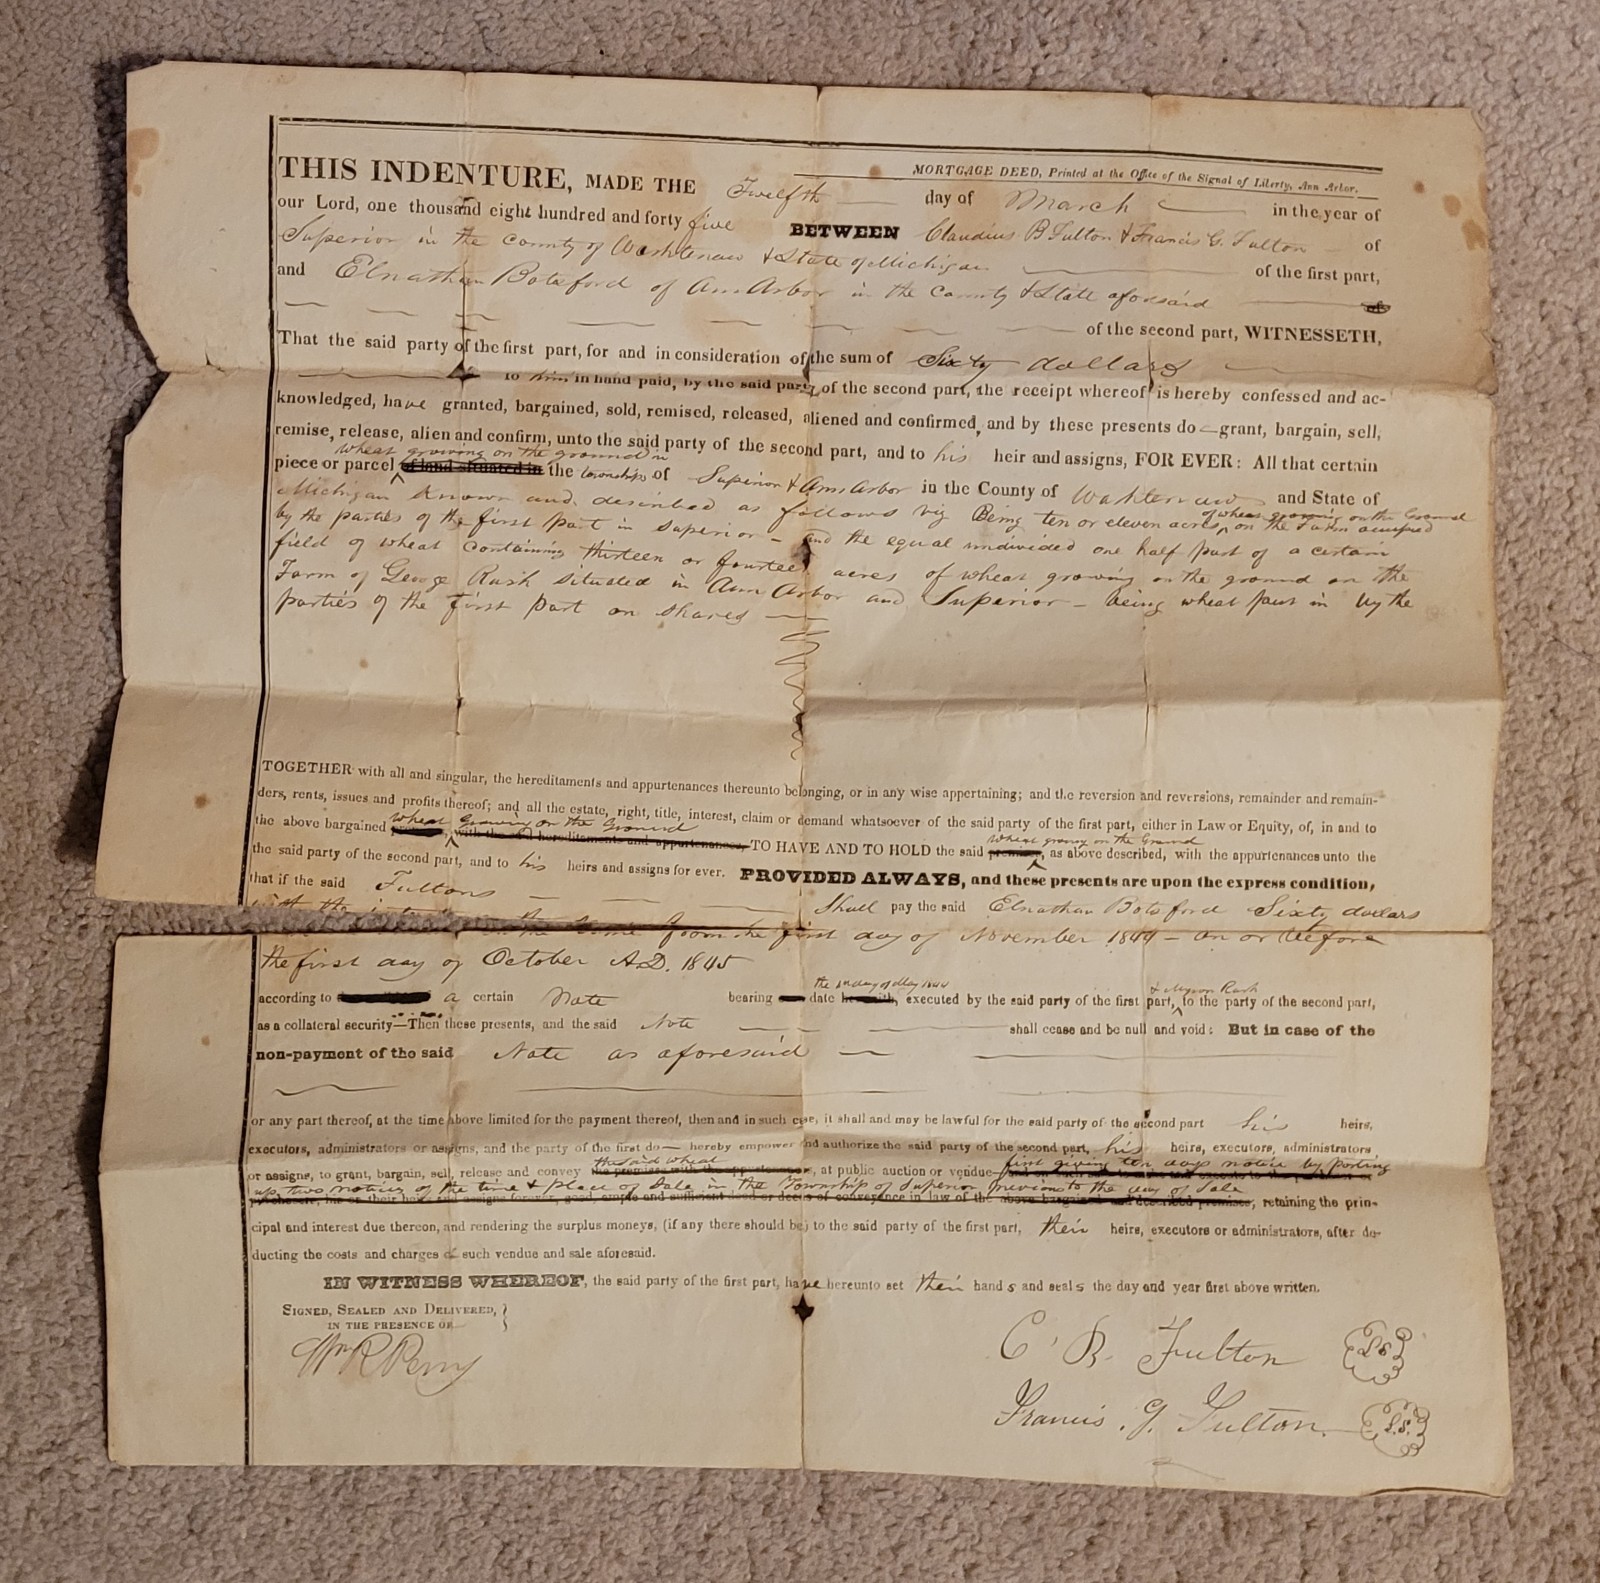 MORTGAGE DEED, Printed at the Office of the Signal of Liberty, Ann Arbor.
THIS INDENTURE, MADE THE Twelfth day of March in the year of
our Lord, one thousand eight hundred and forty five BETWEEN Claudius B Fulton & Francis G. Fulton of
Superior in the County of Washtenaw & State of Michigan of the first part,
and Elnathan Botsford of Ann Arbor in the County & State aforesaid
of the second part, WITNESSETH,
That the said party of the first part, for and in consideration of the sum of Sixty dollars
to him in hand paid, by the said party of the second part, the receipt whereof is hereby confessed and ac-
knowledged, have granted, bargained, sold, remised, released, aliened and confirmed, and by these presents do grant, bargain, sell,
remise, release, alien and confirm, unto the said party of the second part, and to his heir and assigns, FOR EVER: All that certain
wheat growing on the ground in
piece or parcel of land situated in the townships of Superior & Ann Arbor in the County of Washtenaw and State of
Michigan known and described as follows viz Being ten or eleven acres on the Farm
of wheat growing on the Ground
by the parties of the first part in Superior - and the equal undivided one half part of a certain
field of wheat containing thirteen or fourteen acres of wheat growing on the ground on the
Farm of George Rush situated in Ann Arbor and Superior - being wheat put in by the
parties of the first part on shares
TOGETHER with all and singular, the hereditaments and appurtenances thereunto belonging, or in any wise appertaining; and the reversion and reversions, remainder and remain-
ders, rents, issues and profits thereof; and all the estate, right, title, interest, claim or demand whatsoever of the said party of the first part, either in Law or Equity, of, in and to
wheat growing on the Ground
the above bargained premises, with the said hereditaments and appurtenances, TO HAVE AND TO HOLD the said premises, as above described, with the appurtenances unto the
wheat growing on the Ground
the said party of the second part, and to his heirs and assigns for ever. PROVIDED ALWAYS, and these presents are upon the express condition,
that if the said Fultons Shall pay the said Elnathan Botsford Sixty dollars
from the first day of November 1844 - on or before
the first day of October A.D. 1845
according to a certain Note bearing date herewith, executed by the said party of the first part, to the party of the second part,
& Myron Rush
as a collateral security—Then these presents, and the said Note shall cease and be null and void: But in case of the
non-payment of the said Note as aforesaid
or any part thereof, at the time above limited for the payment thereof, then and in such case, it shall and may be lawful for the said party of the second part his heirs,
executors, administrators or assigns, and the party of the first do hereby empower and authorize the said party of the second part, his heirs, executors, administrators
the said wheat
or assigns, to grant, bargain, sell, release and convey the premises with the appurtenances, at public auction or vendue
first giving ten days notice by posting
up two notices of the time & place of Sale in the Township of Superior previous to the day of Sale
purchaser, his or their heirs and assigns forever, good, ample and sufficient deed or deeds of conveyance in law of the above bargained and described premises, retaining the prin-
cipal and interest due thereon, and rendering the surplus moneys, (if any there should be) to the said party of the first part, their heirs, executors or administrators, after de-
ducting the costs and charges of such vendue and sale aforesaid.
IN WITNESS WHEREOF, the said party of the first part, have hereunto set their hands and seals the day and year first above written.
SIGNED, SEALED AND DELIVERED,
IN THE PRESENCE OF
Wm R Perry
C B Fulton L S
Francis G. Fulton L.S.